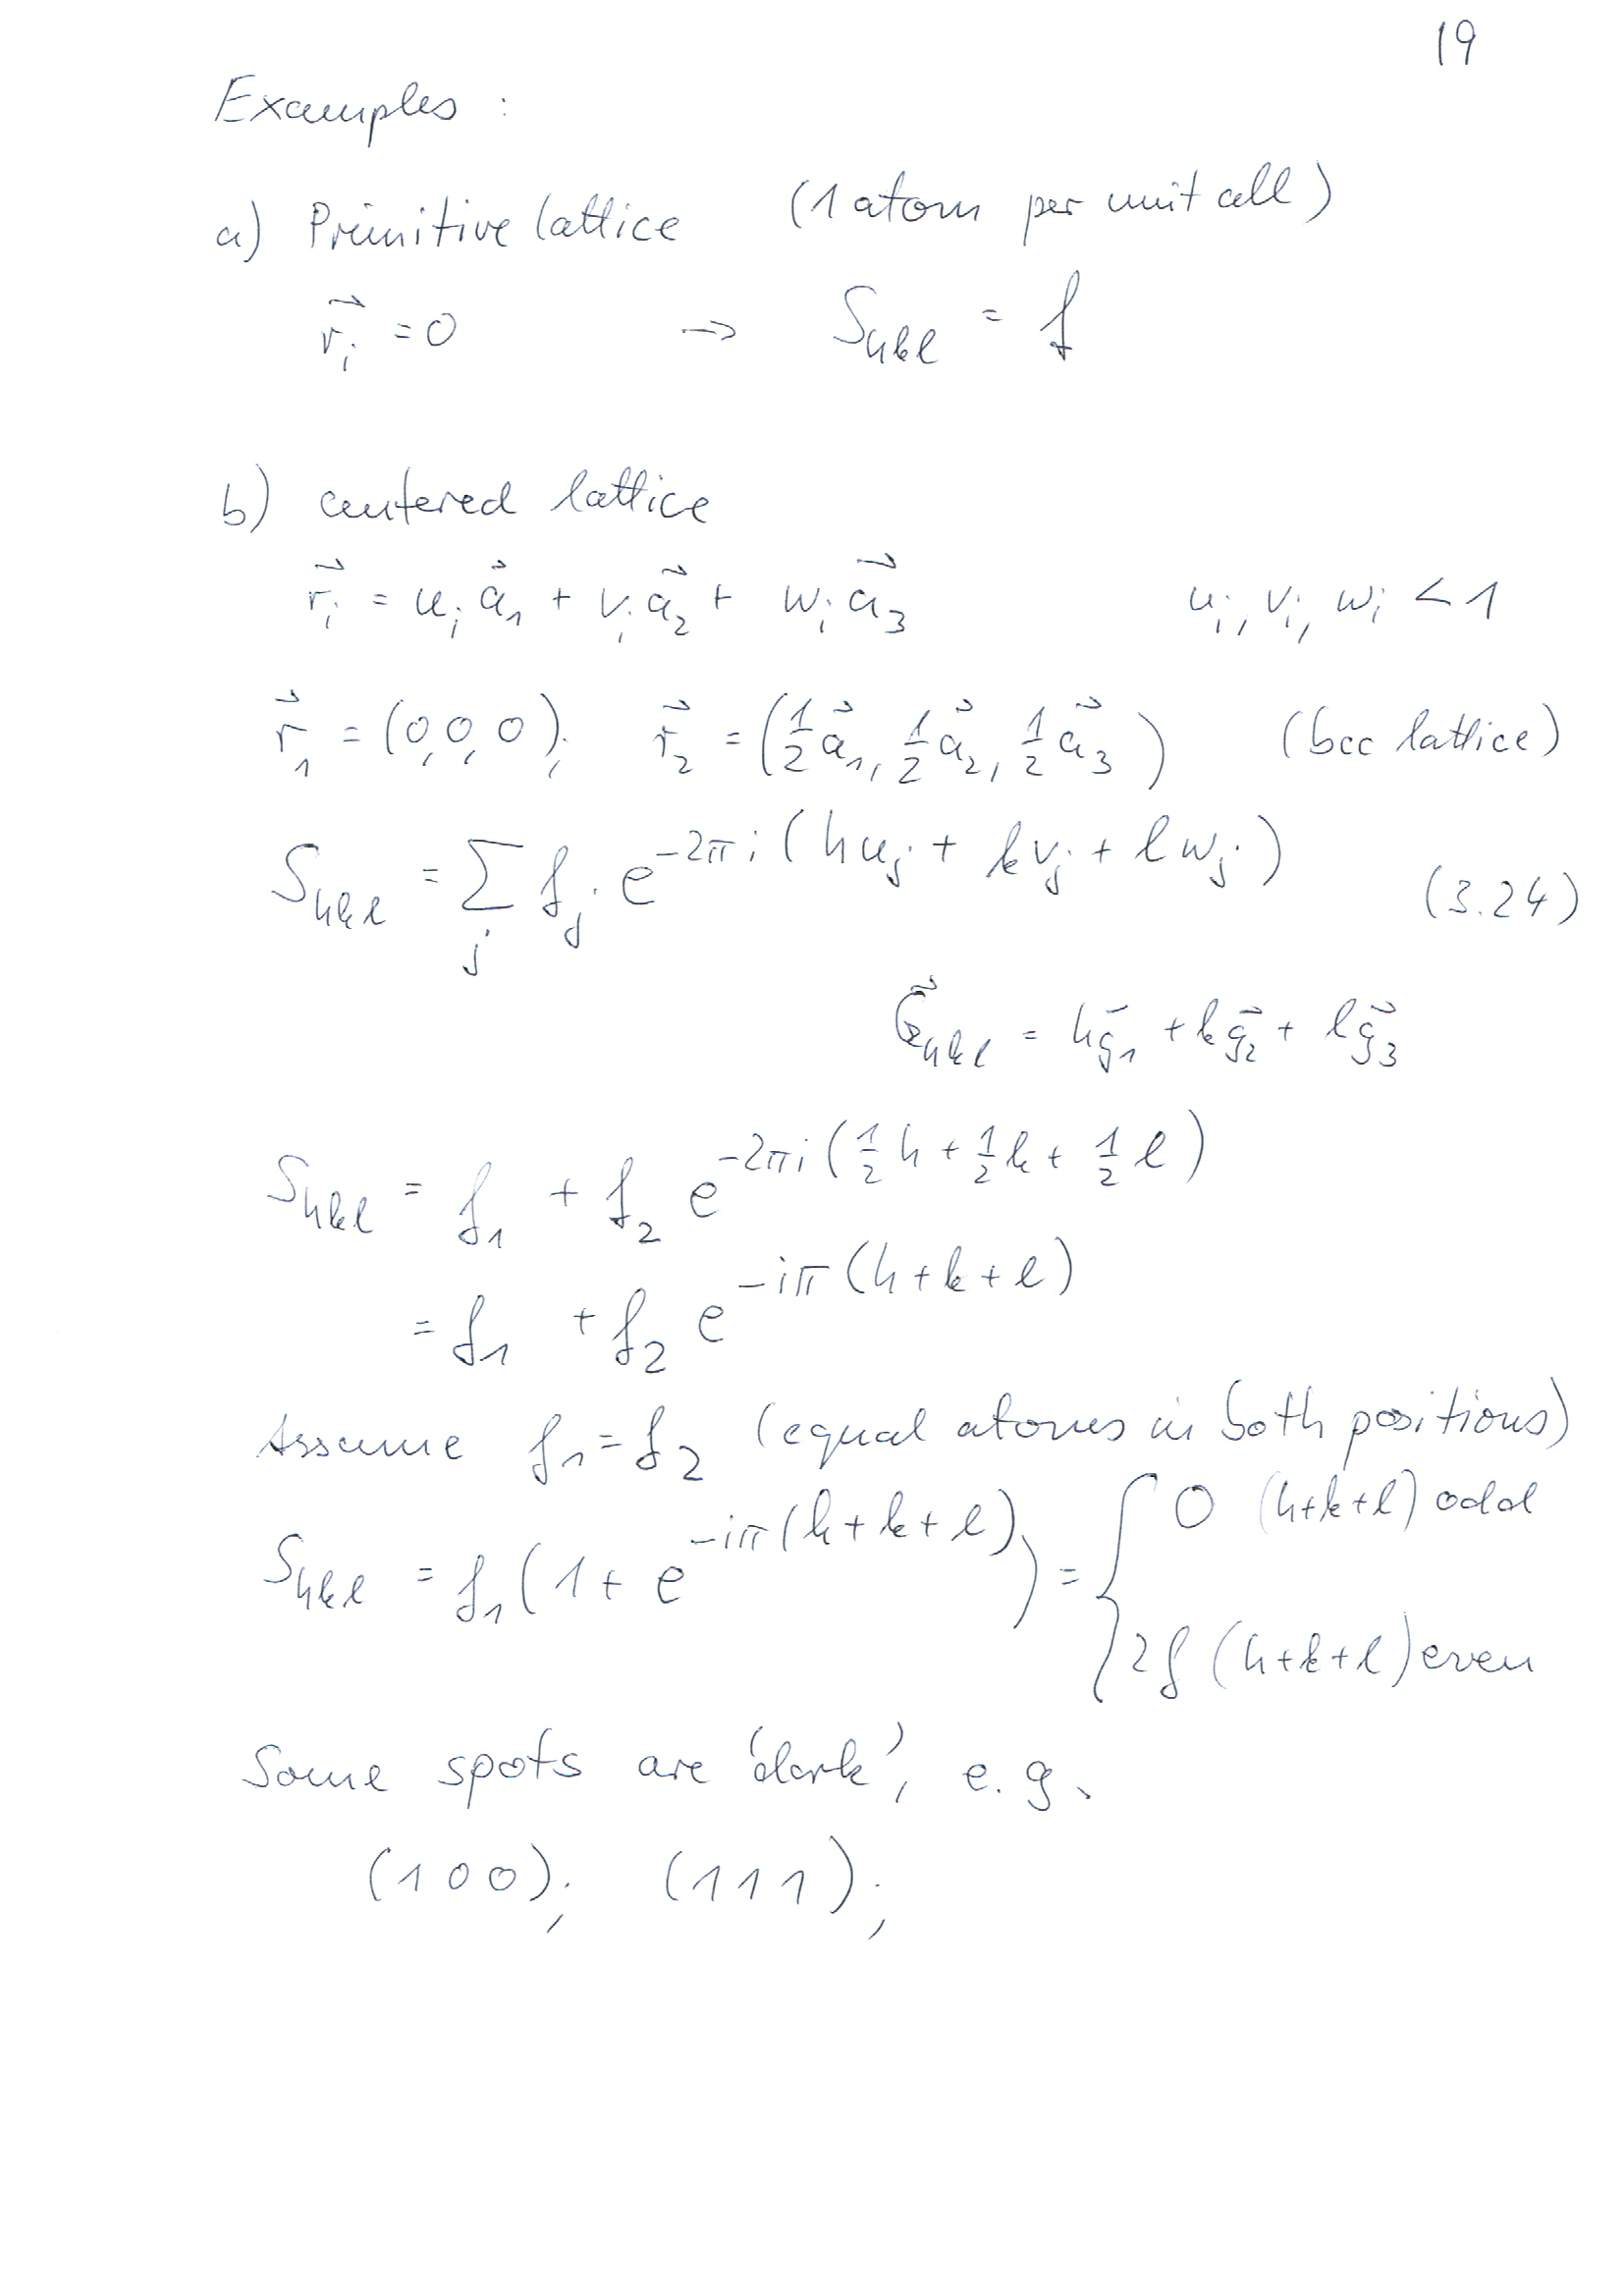 19
Examples :
a) Primitive lattice (1 atom per unit cell)
r⃗ᵢ = 0 → S_hkl = f
b) centered lattice
r⃗ᵢ = uᵢ a⃗₁ + vᵢ a⃗₂ + wᵢ a⃗₃ uᵢ, vᵢ, wᵢ < 1
r⃗₁ = (0,0,0); r⃗₂ = (1/2 a⃗₁, 1/2 a⃗₂, 1/2 a⃗₃) (bcc lattice)
S_hkl = Σ_j f_j e^{-2πi(hu_j + kv_j + lw_j)} (3.24)
G⃗_hkl = hg⃗₁ + kg⃗₂ + lg⃗₃
S_hkl = f₁ + f₂ e^{-2πi(1/2 h + 1/2 k + 1/2 l)}
= f₁ + f₂ e^{-iπ(h+k+l)}
Assume f₁ = f₂ (equal atoms in both positions)
S_hkl = f₁(1 + e^{-iπ(h+k+l)}) = { 0 (h+k+l) odd
2f (h+k+l) even
Some spots are 'dark', e.g.
(100); (111);